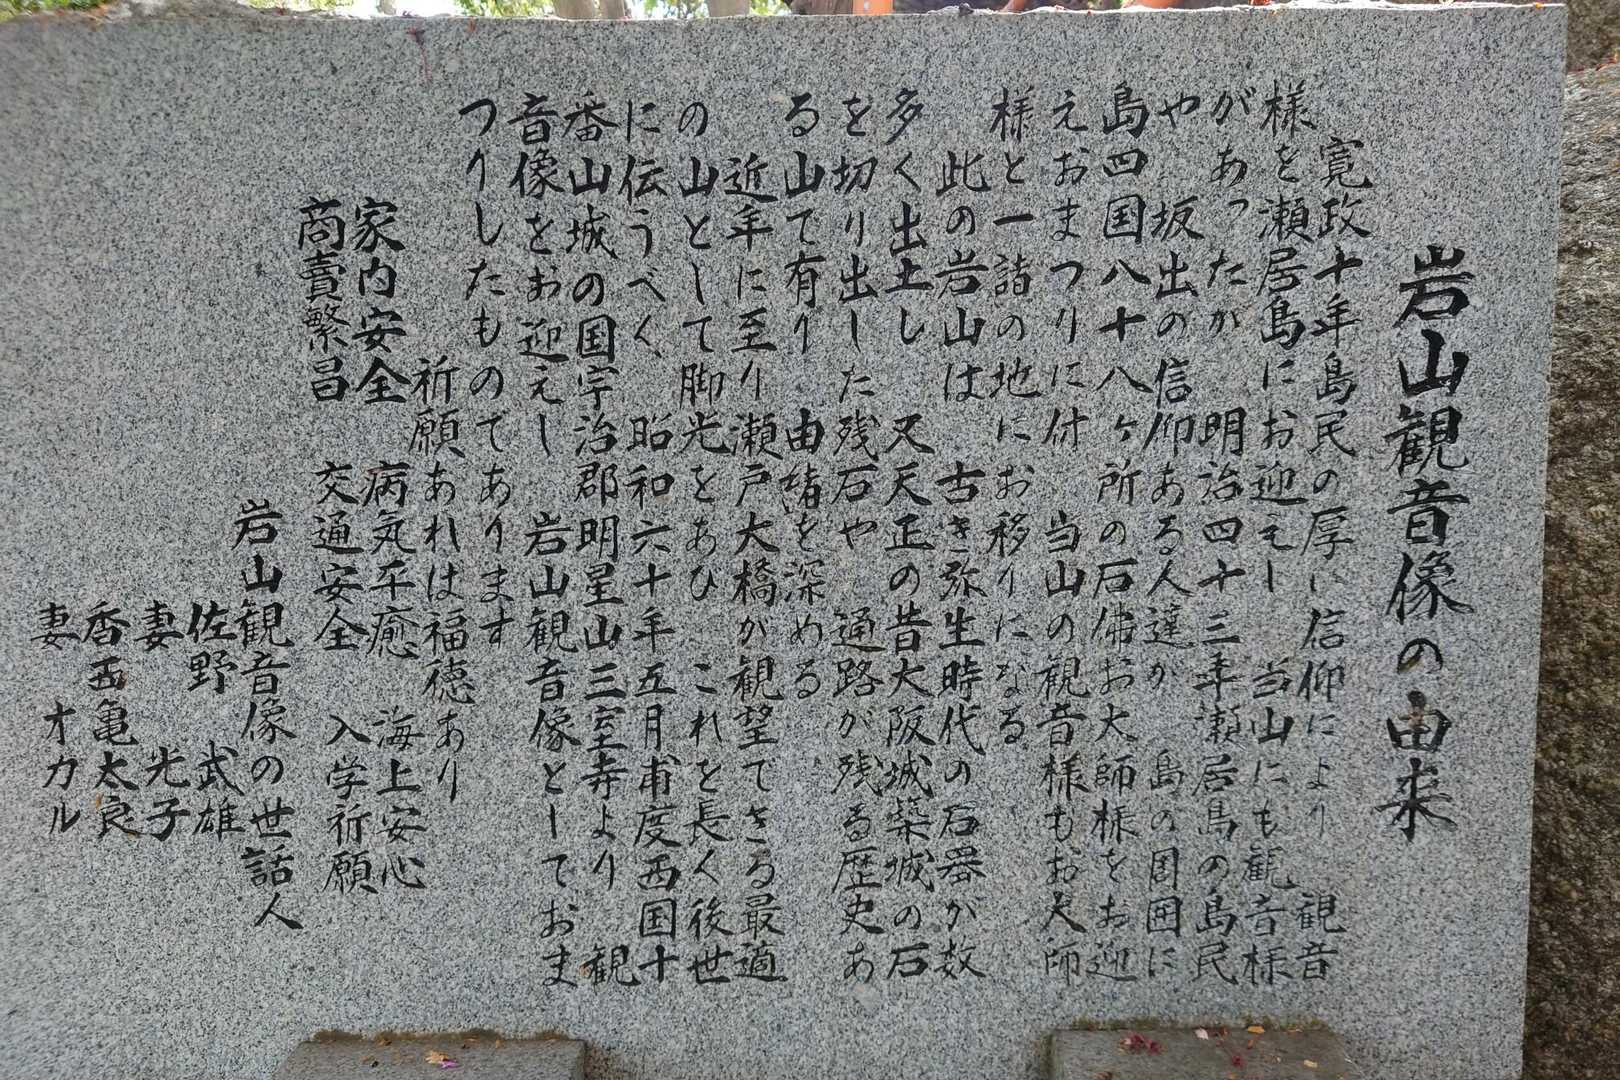 岩山観音像の由来
寛政十年島民の厚い信仰により 観音
様を瀬居島にお迎えし 当山にも観音様
があったが 明治四十三年瀬居島の島民
や坂出の信仰ある人達が 島の周囲に
島四国八十八ヶ所の石佛お大師様をお迎
えおまつりに付 当山の観音様もお大師
様と一諸の地にお移りになる
此の岩山は 古き弥生時代の石器が数
多く出土し 又天正の昔大阪城築城の石
を切り出した残石や 通路が残る歴史あ
る山て有り 由緒を深める
近年に至り瀬戸大橋が観望できる最適
の山として脚光をあび これを長く後世
に伝うべく、昭和六十年五月甫度西国十
番山城の国宇治郡明星山三室寺より 観
音像をお迎えし 岩山観音像としておま
つりしたものであります
祈願あれは福徳あり
家内安全 病気平癒 海上安心
商賣繁昌 交通安全 入学祈願
岩山観音像の世話人
佐野 武雄
妻 光子
香西亀太良
妻 オカル